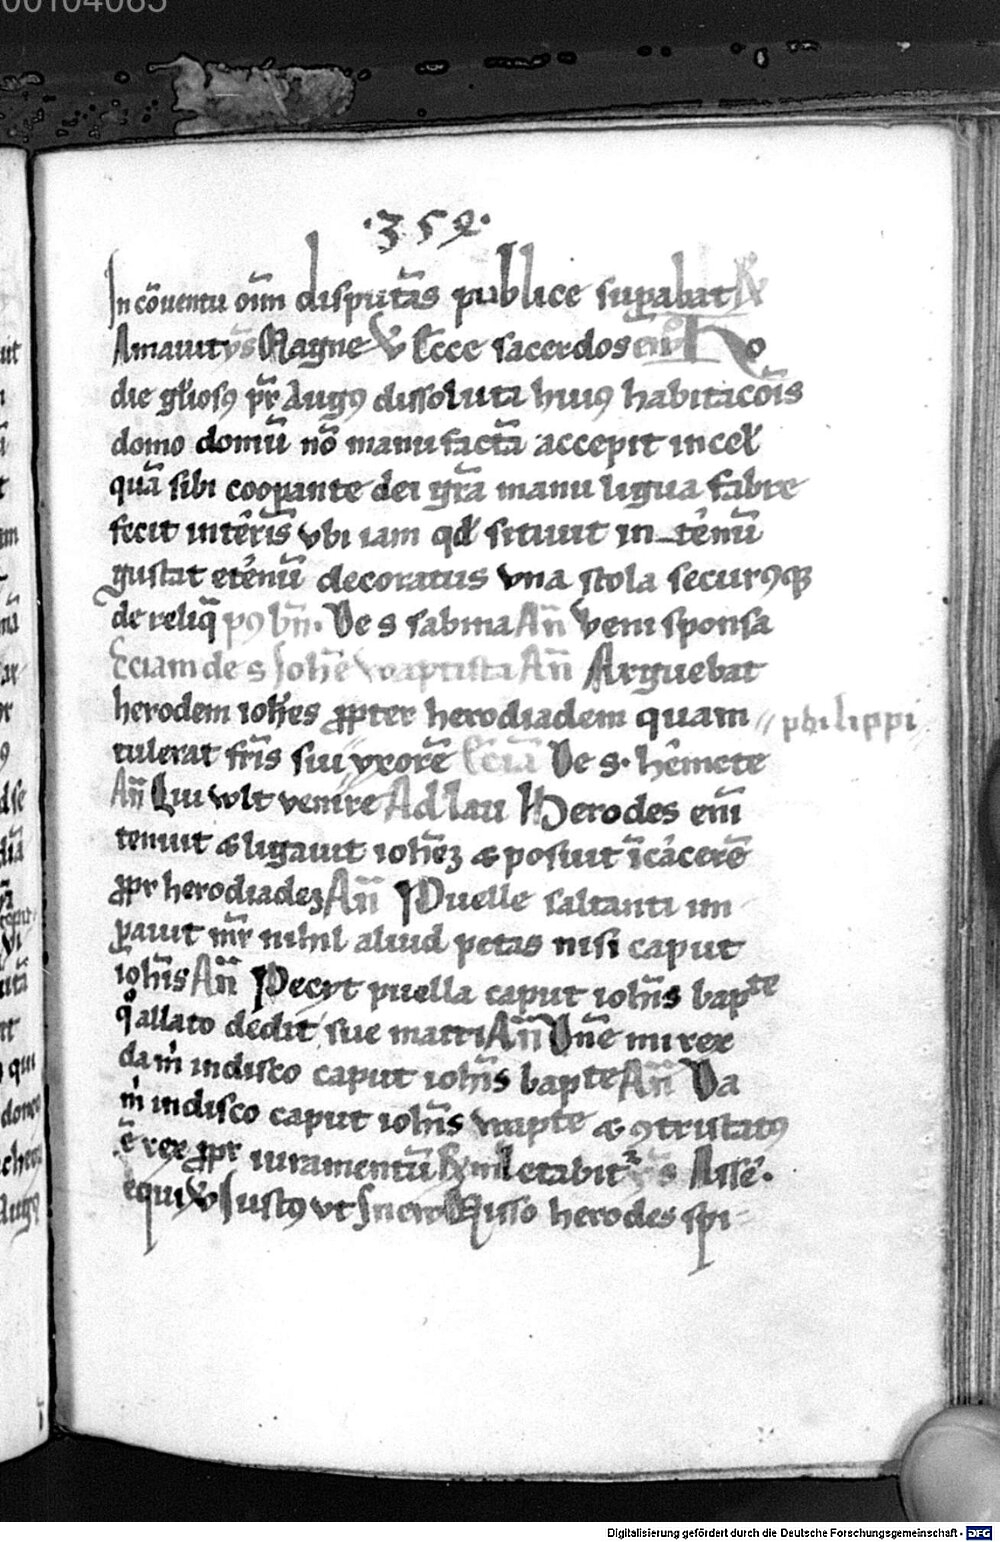 00104085
·352·
In cōuentu oīm disputās publice supabat V̄
Amauit ys Magne V Ecce sacerdos eu Ho
die gl'iosꝰ pr̄ Augꝰ dissoluta huiꝰ habitacōis
domo domū nō manu factā accepit in cel'
quā sibi coopante dei grā manu ligua fabre
fecit intēris vbi iam qd' sitiuit in tēnū
gustat etēnū decoratus vna stola securꝰqꝫ
de reliq̄ pꝰ bn̄. De s sabina Añ Veni sponsa
Eciam de s Johē vaptista Añ Arguebat
herodem ioh'es ꝓpter herodiadem quam
philippi
tulerat fr̄is sui vxorē Eciā De s. hēmete
Añ Qui wlt venire Ad lau Herodes eni̅
tenuit & ligauit iohēꝫ & posuit ī cácerē
ꝓpr herodiadeꝫ Añ Puelle saltanti im
ꝑauit mr̄ nihil aliud petas nisi caput
iohīs Añ Pecyt puella caput iohīs bapte
q° allato dedit sue matri Añ Dn̄e mi rex
da m' in disco caput iohīs bapte Añ Da
m' in disco caput iohīs vapte & ꝯtristatꝰ
ē rex ꝓpr iuramentū Hym letabit ys Asse.
equi V Justꝰ vt Misso herodes spi
Digitalisierung gefördert durch die Deutsche Forschungsgemeinschaft - DFG